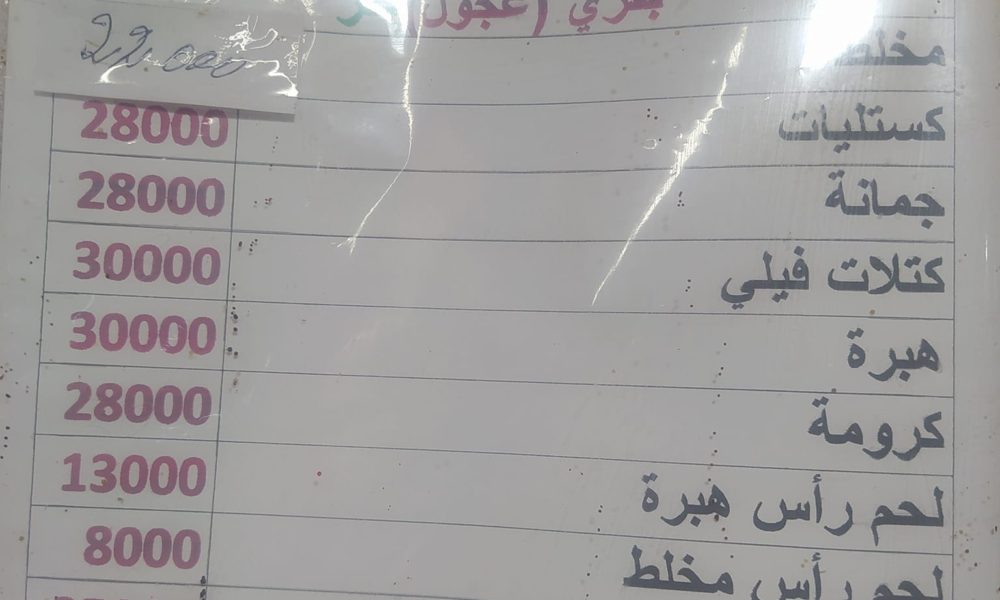 بقري (عجول)
مخلط 22.000
كستليات 28000
جمانة 28000
كتلات فيلي 30000
هبرة 30000
كرومة 28000
لحم رأس هبرة 13000
لحم رأس مخلط 8000